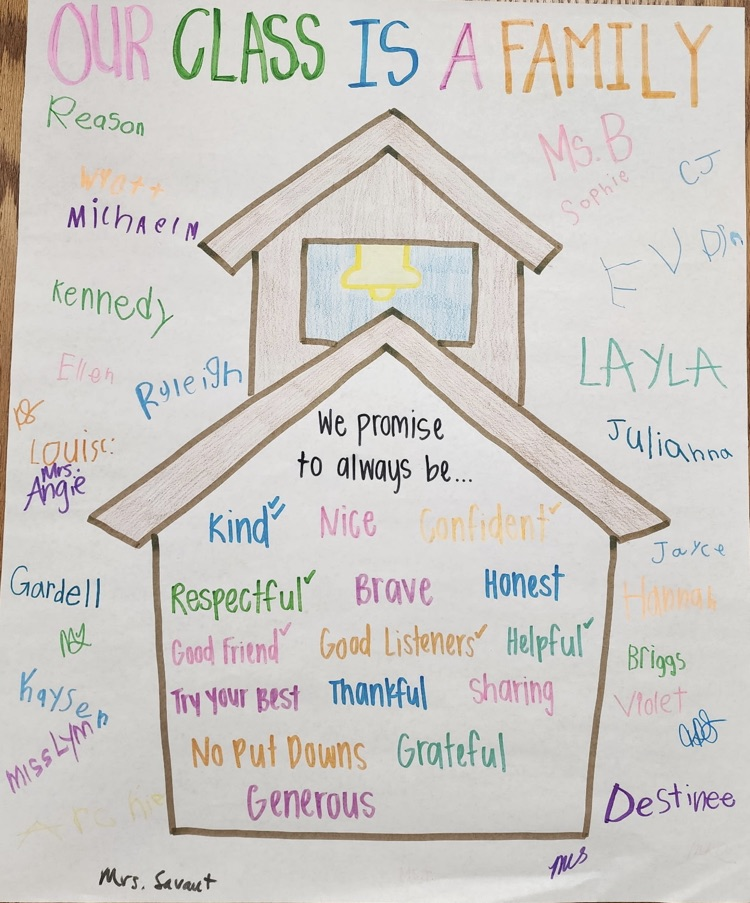 OUR CLASS IS A FAMILY
Reason
Wyatt
Michaeln
Kennedy
Ellen
Ryleigh
Mrs.
Angie
Gardell
Kaysen
Miss Lynn
Mrs. Savant
We promise
to always be...
Kind Nice Confident
Respectful Brave Honest
Good Friend Good Listeners Helpful
Try Your Best Thankful Sharing
No Put Downs Grateful
Generous
Ms. B
CJ
Sophie
LAYLA
Julianna
Jayce
Hannah
Briggs
Violet
Destinee